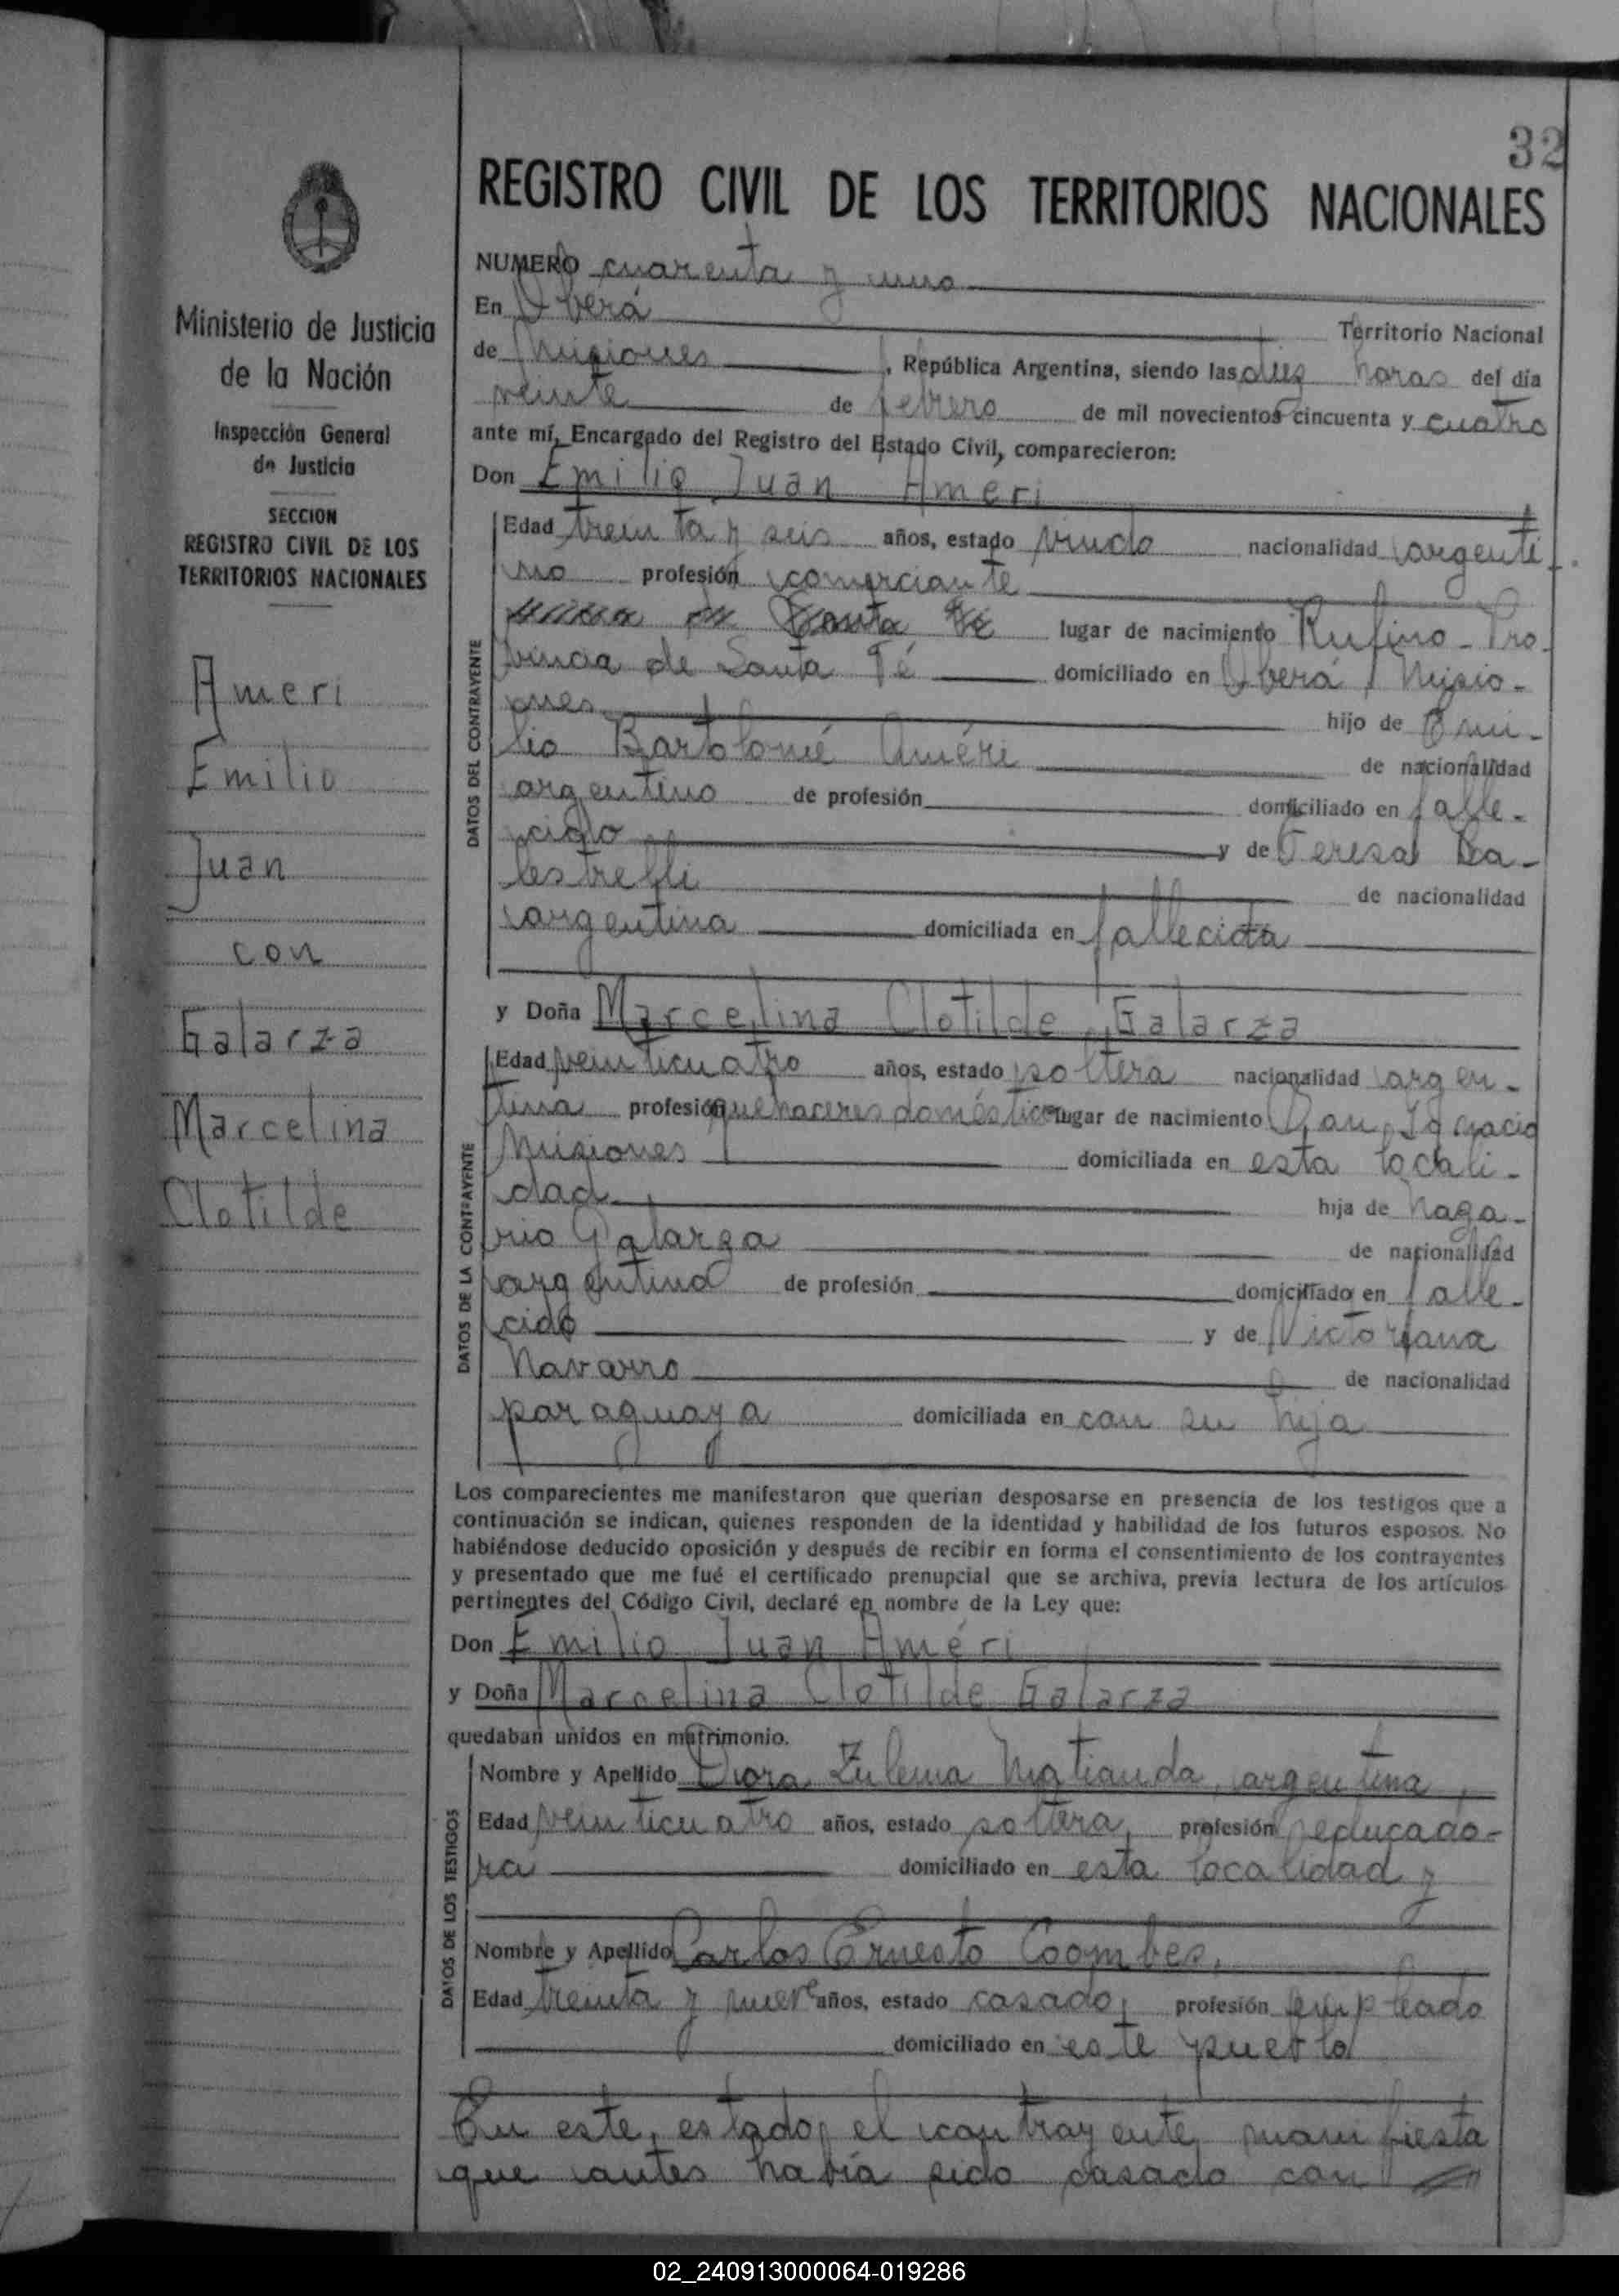 32
REGISTRO CIVIL DE LOS TERRITORIOS NACIONALES
Ministerio de Justicia
de la Nación
Inspección General
de Justicia
SECCION
REGISTRO CIVIL DE LOS
TERRITORIOS NACIONALES
Ameri
Emilio
Juan
con
Galarza
Marcelina
Clotilde
NUMERO cuarenta y uno
En Oberá Territorio Nacional
de Misiones, República Argentina, siendo las diez horas del día
veinte de febrero de mil novecientos cincuenta y cuatro
ante mí, Encargado del Registro del Estado Civil, comparecieron:
Don Emilio Juan Ameri
DATOS DEL CONTRAYENTE
Edad treinta y seis años, estado viudo nacionalidad argenti
no profesión comerciante
de Santa Fé lugar de nacimiento Rufino - Pro-
vincia de Santa Fé domiciliado en Oberá, Misio-
nes hijo de Emi-
lio Bartolomé Améri de nacionalidad
argentino de profesión domiciliado en falle-
cido y de Teresa Ba-
lestrelli de nacionalidad
argentina domiciliada en fallecida
y Doña Marcelina Clotilde Galarza
DATOS DE LA CONTRAYENTE
Edad veinticuatro años, estado soltera nacionalidad argen-
tina profesión quehaceres domésticos lugar de nacimiento San Ignacio
Misiones domiciliada en esta locali-
dad hija de Naza-
rio Galarza de nacionalidad
argentino de profesión domiciliado en falle-
cido y de Victoriana
Navarro de nacionalidad
paraguaya domiciliada en con su hija
Los comparecientes me manifestaron que querían desposarse en presencia de los testigos que a
continuación se indican, quienes responden de la identidad y habilidad de los futuros esposos. No
habiéndose deducido oposición y después de recibir en forma el consentimiento de los contrayentes
y presentado que me fué el certificado prenupcial que se archiva, previa lectura de los artículos
pertinentes del Código Civil, declaré en nombre de la Ley que:
Don Emilio Juan Améri
y Doña Marcelina Clotilde Galarza
quedaban unidos en matrimonio.
DATOS DE LOS TESTIGOS
Nombre y Apellido Dora Zulema Matiauda, argentina,
Edad veinticuatro años, estado soltera, profesión educado-
ra domiciliado en esta localidad y
Nombre y Apellido Carlos Ernesto Coombes,
Edad treinta y nueve años, estado casado, profesión empleado
domiciliado en este pueblo
En este estado, el contrayente manifiesta
que antes había sido casado con
02_240913000064-019286